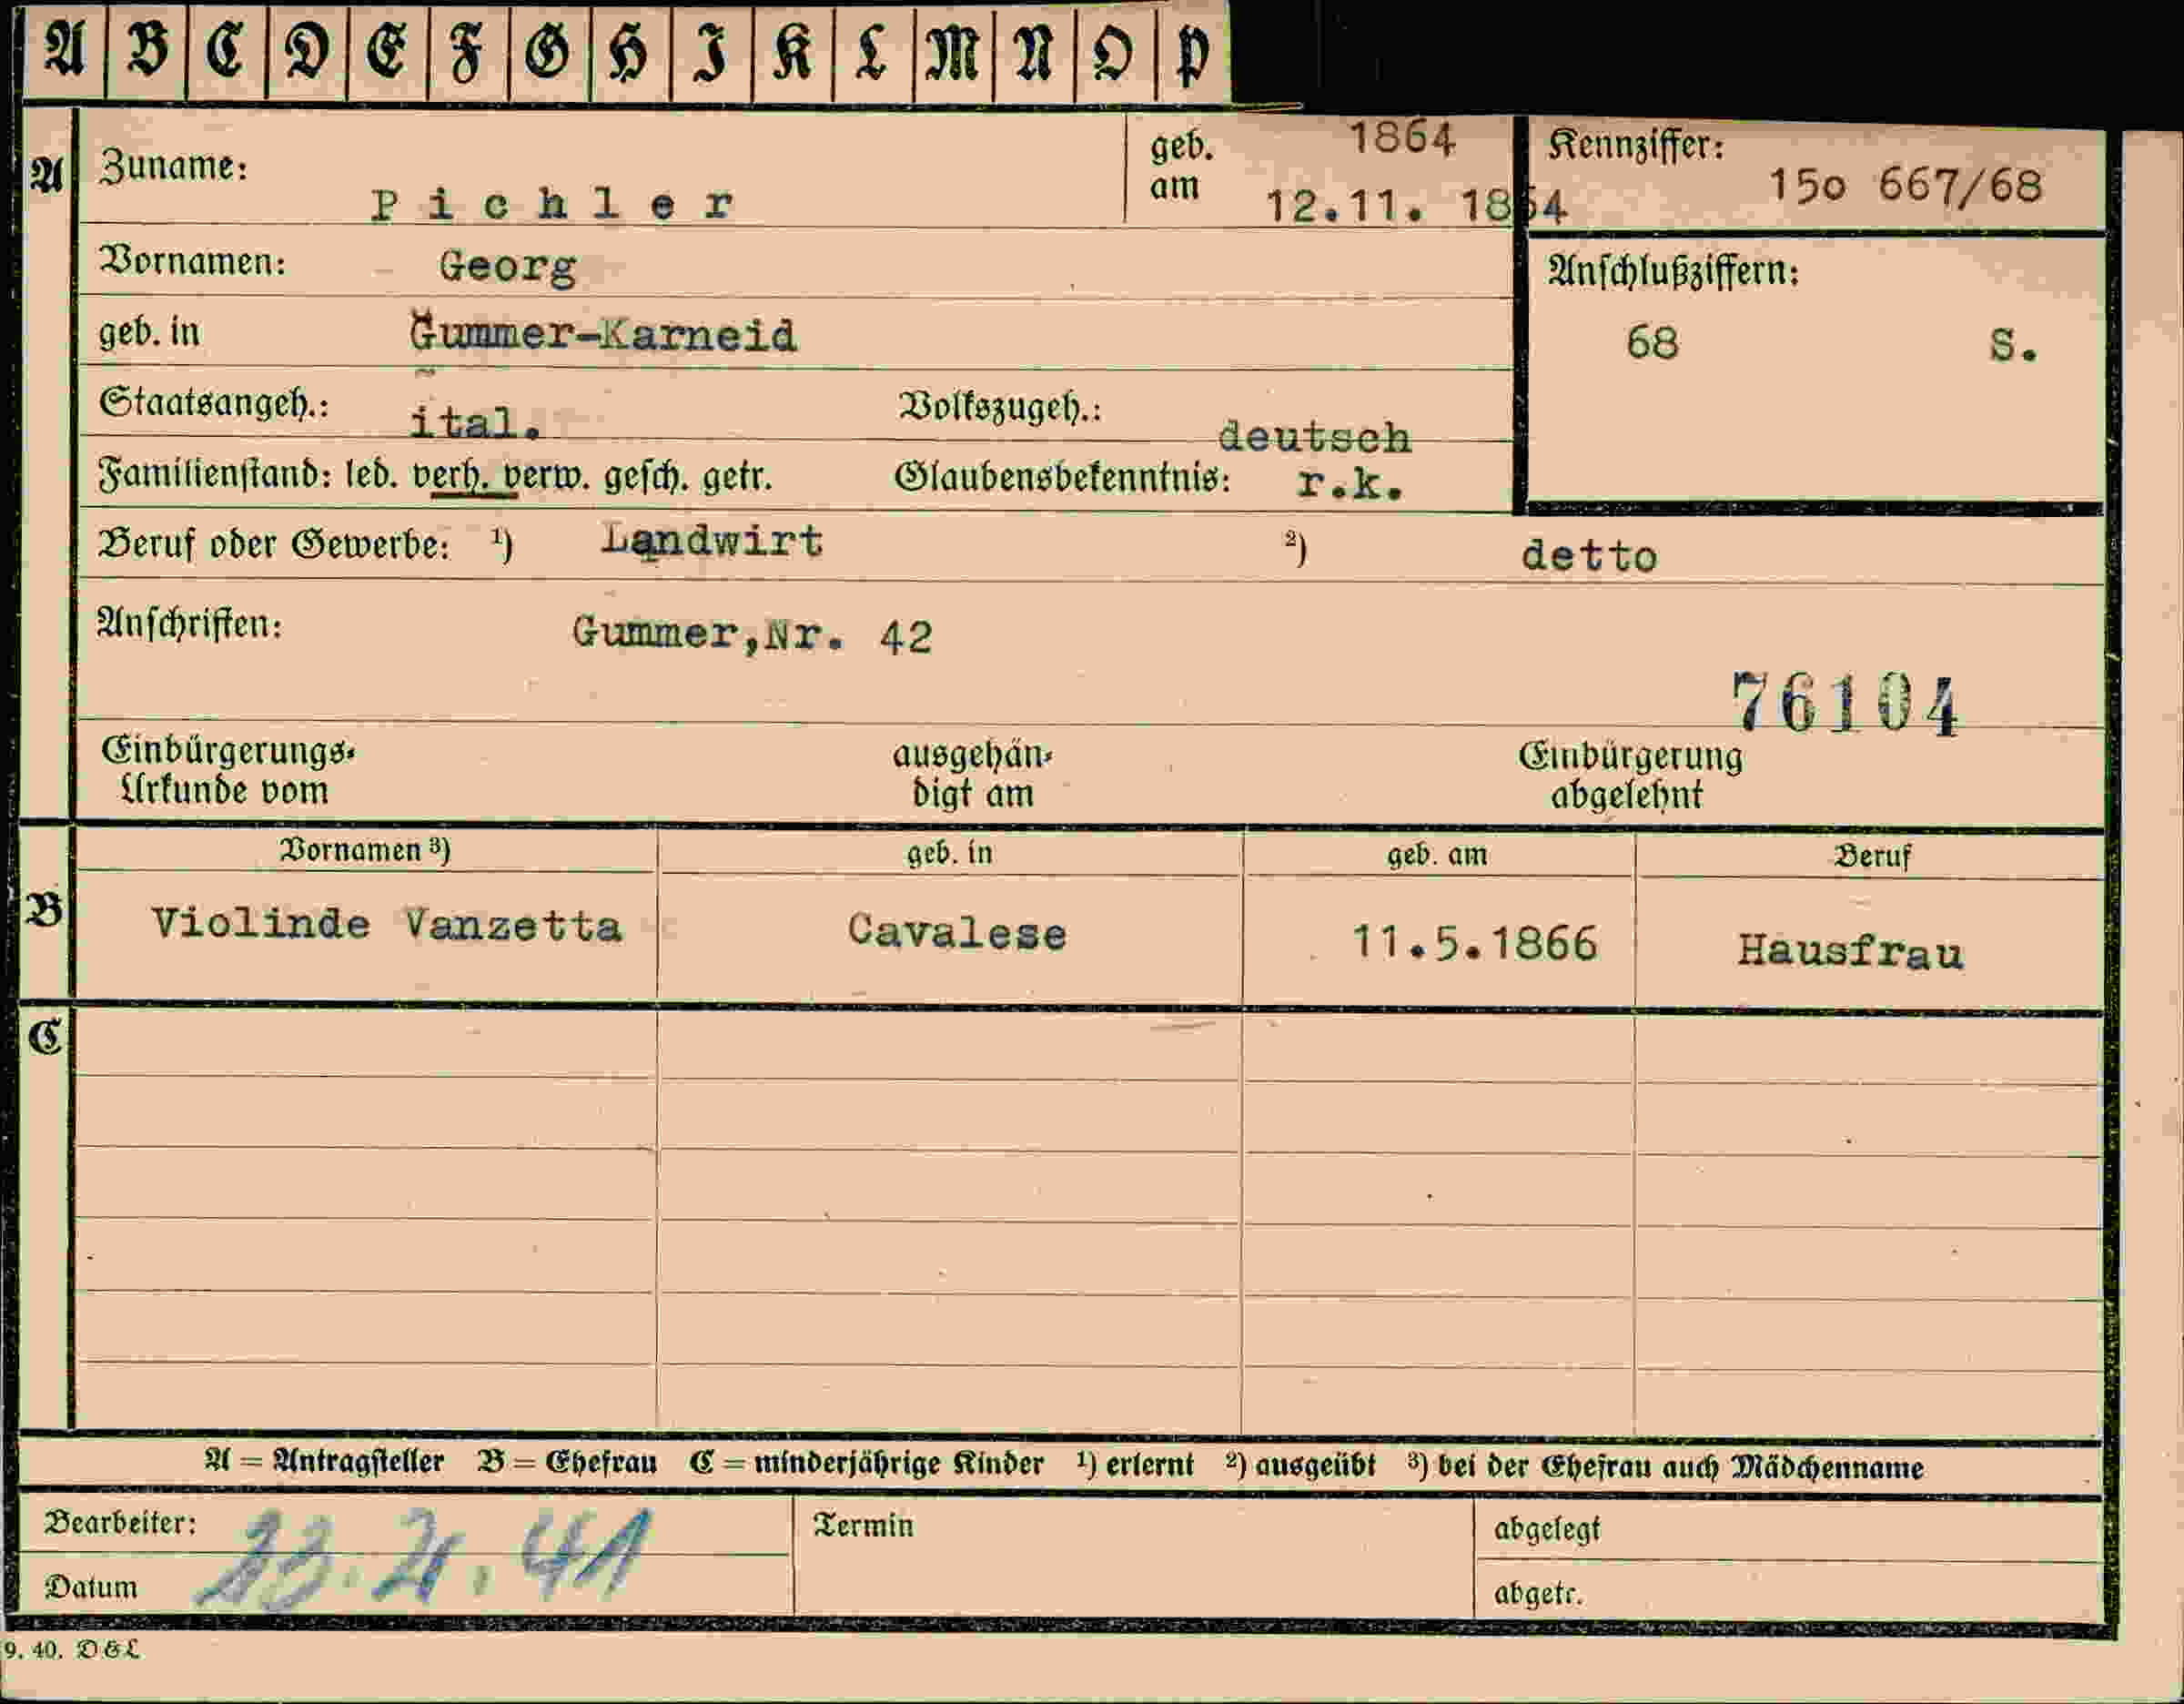 A B C D E F G H I K L M N O P
A Zuname: Pichler geb. am 1864 12.11. 1864 Kennziffer: 15o 667/68
Vornamen: Georg Anschlußziffern:
geb. in Gummer-Karneid 68 S.
Staatsangeh.: ital. Volkszugeh.: deutsch
Familienstand: led. verh. verw. gesch. getr. Glaubensbekenntnis: r.k.
Beruf oder Gewerbe: ¹) Landwirt ²) detto
Anschriften: Gummer,Nr. 42
76104
Einbürgerungs- ausgehän- Einbürgerung
Urkunde vom digt am abgelehnt
Vornamen ³) geb. in geb. am Beruf
B Violinde Vanzetta Cavalese 11.5.1866 Hausfrau
C
A = Antragsteller B = Ehefrau C = minderjährige Kinder ¹) erlernt ²) ausgeübt ³) bei der Ehefrau auch Mädchenname
Bearbeiter: Termin abgelegt
Datum abgetr.
9. 40. DGL